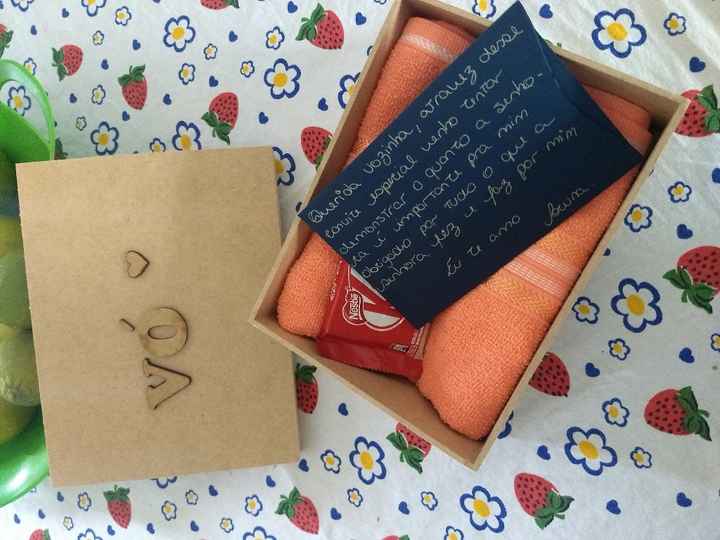 vó
Querida vozinha, através desse
convite especial venho tentar
demonstrar o quanto a senho-
ra é importante pra mim
obrigado por tudo o que a
senhora fez e faz por mim
Eu te amo
Nestlé